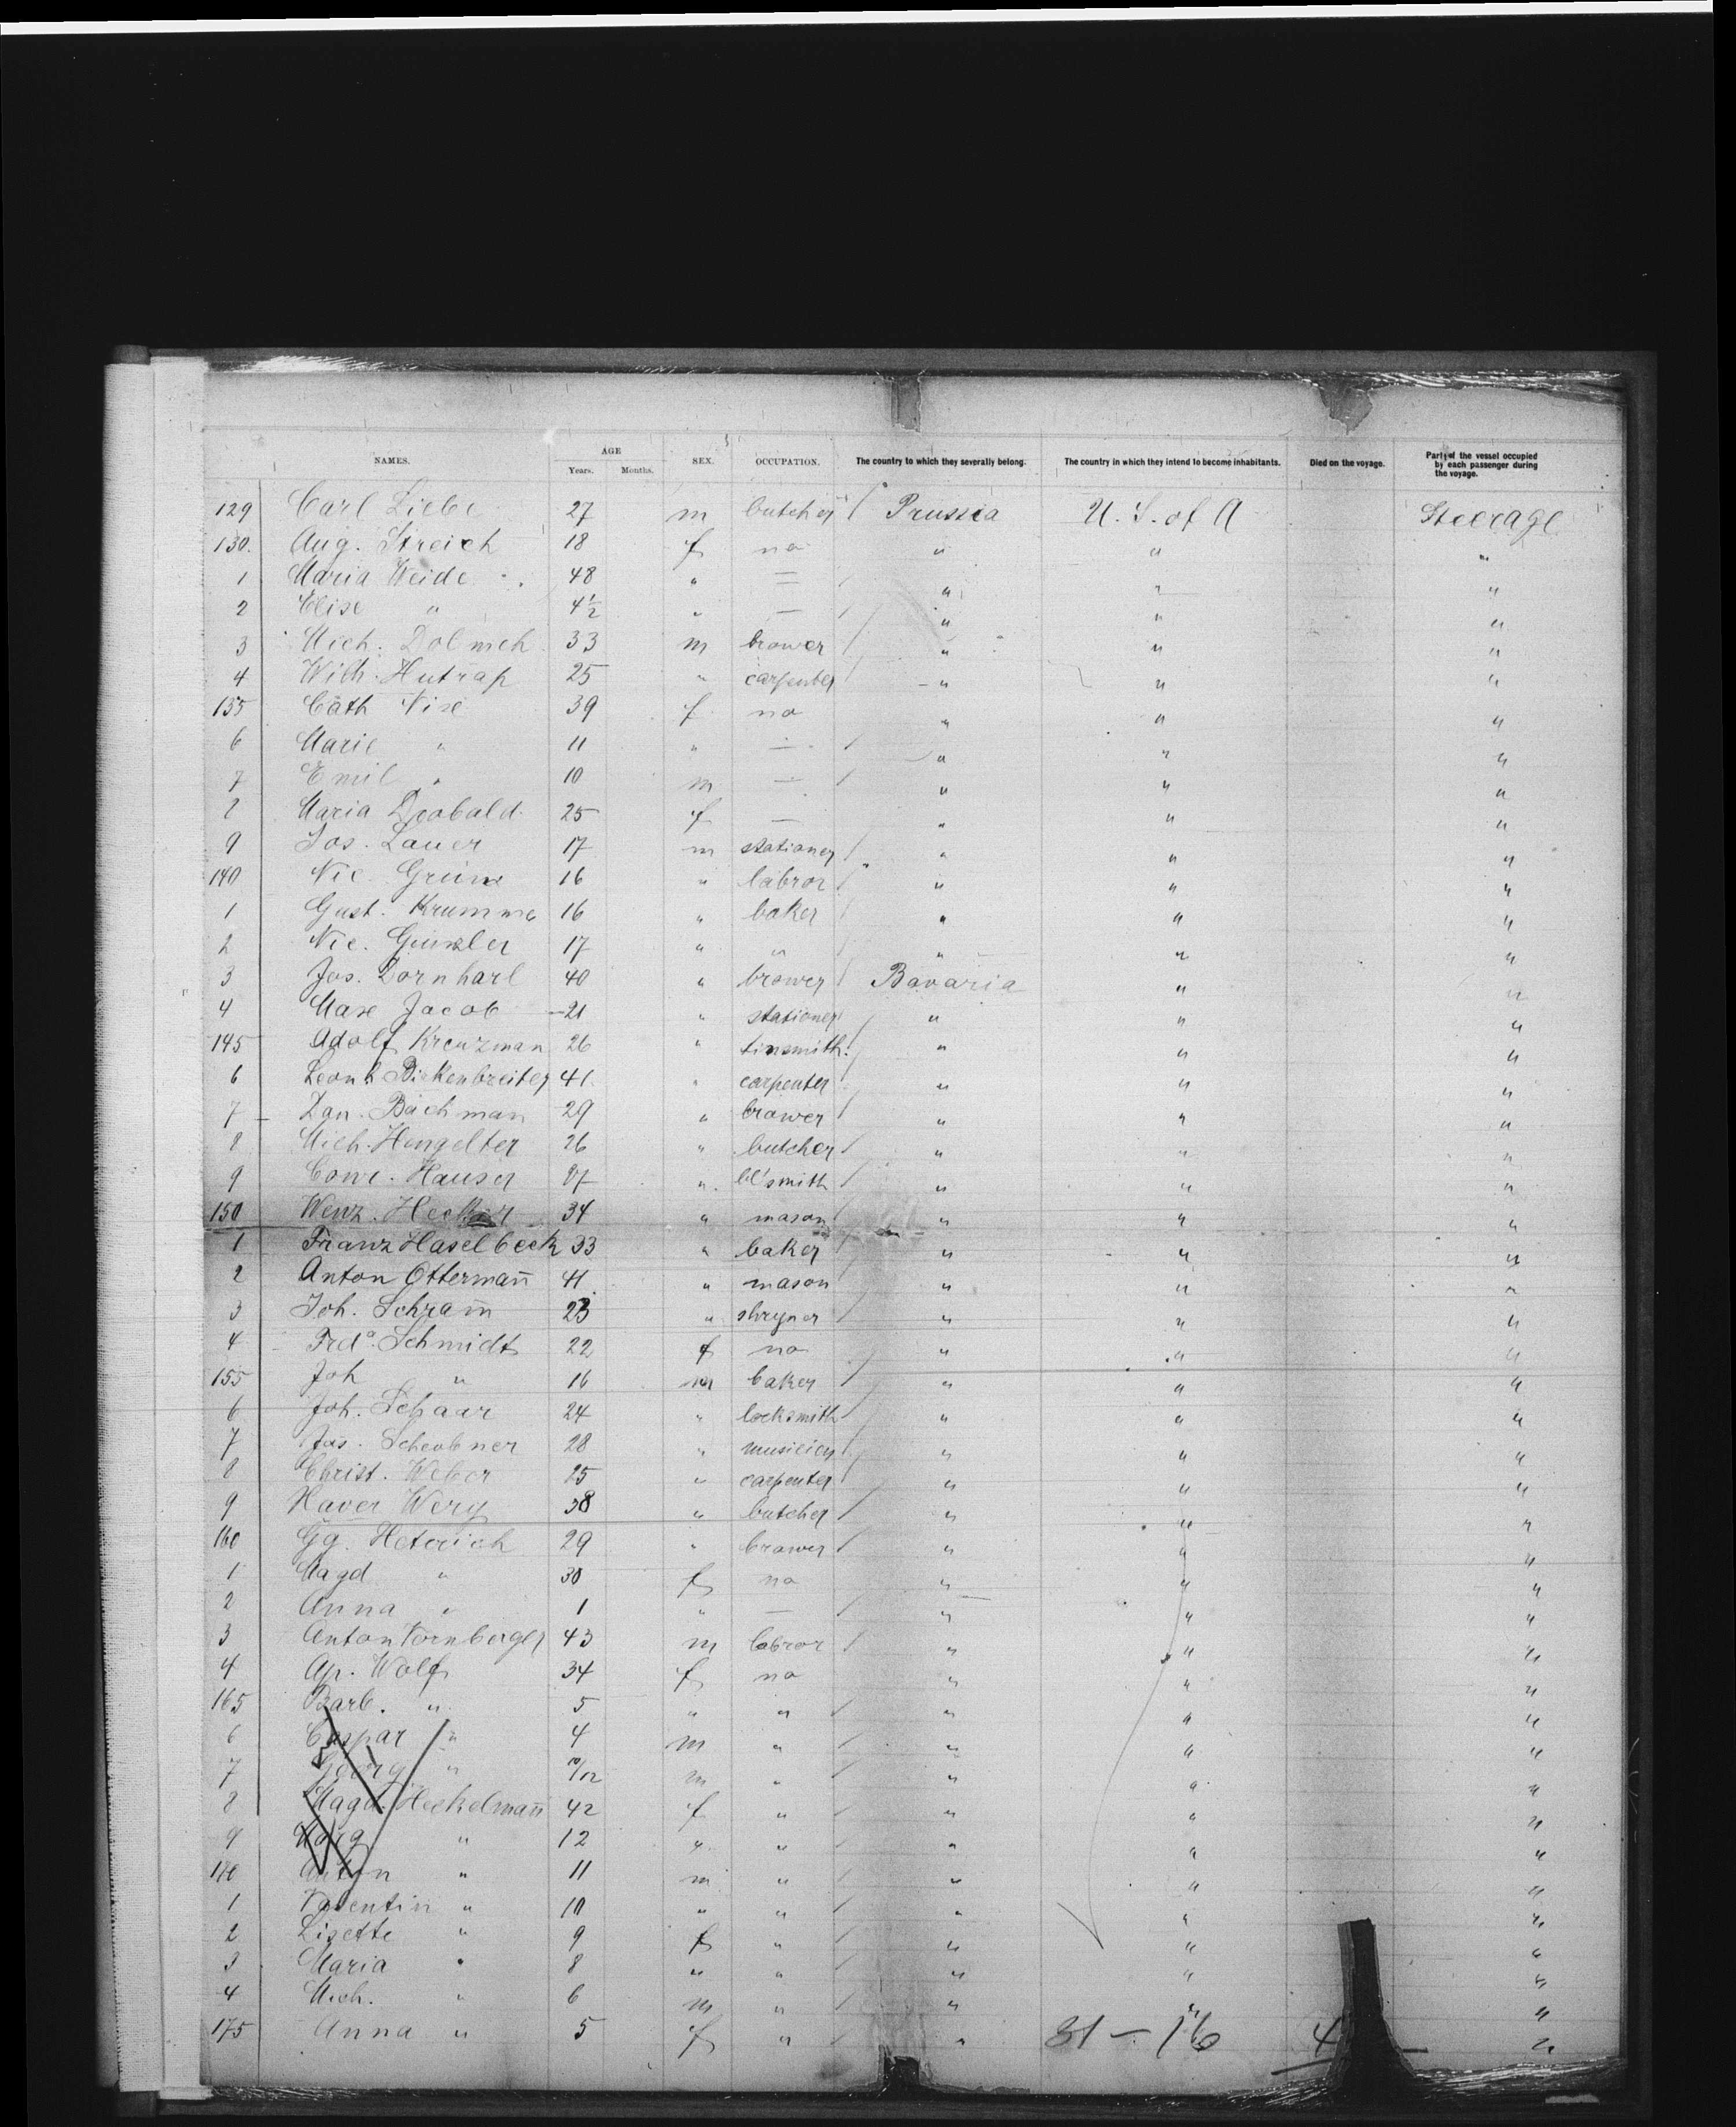 NAMES. AGE Years. Months. SEX. OCCUPATION. The country to which they severally belong. The country in which they intend to become inhabitants. Died on the voyage. Part of the vessel occupied by each passenger during the voyage.
129 Carl Liebe 27 m butcher / Prussia U. S. of A Steerage
130. Aug. Streich 18 f no " " "
1 Maria Weide 48 " — / " " "
2 Elise " 4½ " — / " " "
3 Mich. Dolmeh 33 m brower / " " "
4 Wilh. Hutrap 25 " carpenter / " " "
135 Cath Nise 39 f no " " "
6 Marie " 11 " — / " " "
7 Emil " 10 m — / " " "
8 Maria Drobald 25 f — " " "
9 Jos. Lauer 17 m stationer / " " "
140 Nic. Grün 16 " labror / " " "
1 Gust. Krumme 16 " baker / " " "
2 Nic. Günzler 17 " " / " " "
3 Jos. Dornharl 40 " brower / Bavaria " "
4 Max Jacob 21 " stationer / " " "
145 Adolf Kreuzman 26 " tinsmith / " " "
6 Leonh Dickenbreiter 41 " carpenter / " " "
7 Dan. Bachman 29 " brower / " " "
8 Mich. Hengelter 26 " butcher / " " "
9 Conr. Hauser 27 " bl'smith / " " "
150 Wenz. Hecker 34 " mason / " " "
1 Franz Haselbeck 33 " baker / " " "
2 Anton Ottermañ 41 " mason / " " "
3 Joh. Schram̄ 23 " shryner / " " "
4 Frdª Schmidt 22 f no " " "
155 Joh " 16 m baker / " " "
6 Joh. Schaar 24 " locksmith / " " "
7 Jas. Scheubner 28 " musicien / " " "
8 Christ. Weber 25 " carpenter / " " "
9 Xaver Wery 38 " butcher / " " "
160 Gg. Heterich 29 " brawer / " " "
1 Magd " 30 f no " " "
2 Anna " 1 " — / " " "
3 Anton Vornberger 43 m labror / " " "
4 Ap. Wolf 34 f no " " "
165 Barb. " 5 " " / " " "
6 Caspar " 4 m " / " " "
7 Georg " 10/12 m " / " " "
8 Magd. Heckelmañ 42 f " / " " "
9 " 12 " " / " " "
170 Anton " 11 m " / " " "
1 Valentin " 10 " " / " " "
2 Lisette " 9 f " / " " "
3 Maria " 8 " " / " " "
4 Mich. " 6 m " / " " "
175 Anna " 5 f " / " " "
31 — 16 4